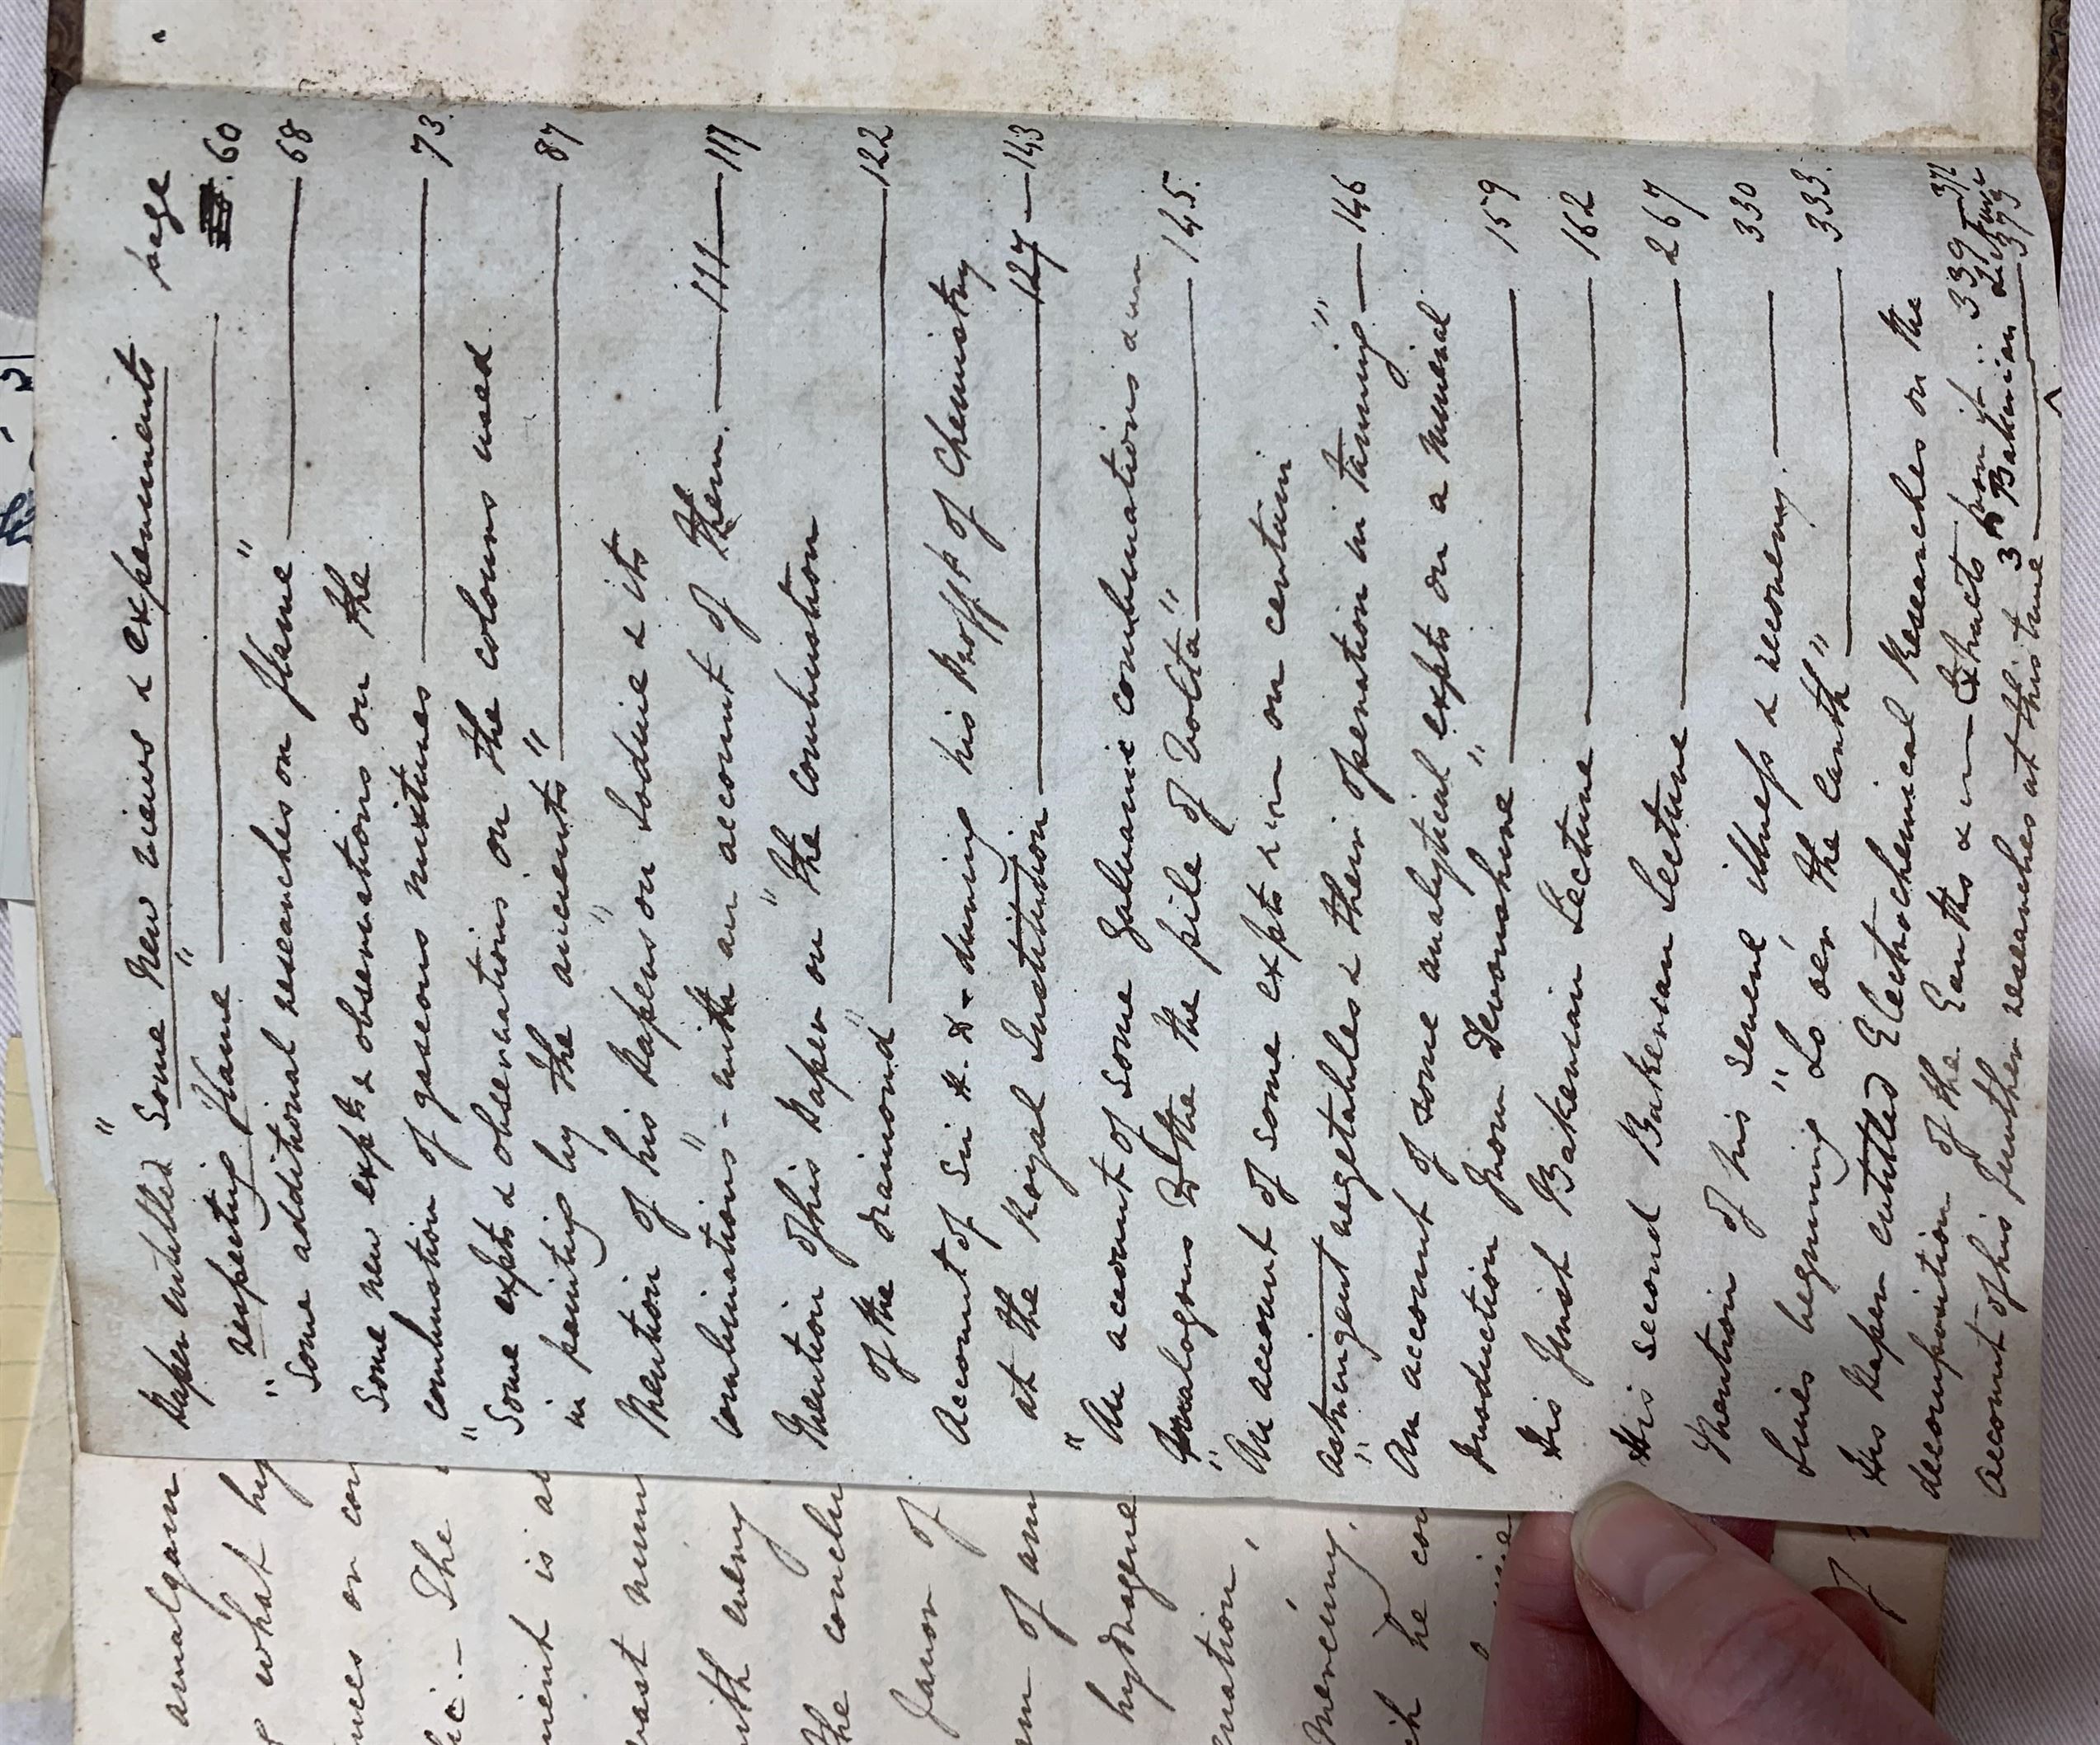 page
Paper entitled "Some New views & experiments
respecting flame" 60
"Some additional researches on flame" 68
Some new expts & observations on the
combustion of gaseous mixtures 73.
"Some expts & observations on the colours used
in painting by the ancients" 87
Mention of his papers "on Iodine & its
combinations" - with an account of them. 111 — 117
Mention of his paper on "the combustion
of the diamond" 122
Account of Sir H. D - during his Proffp of Chemistry
at the Royal Institution 127 — 143
"An account of some Galvanic combinations &
Analogous to the pile of Volta" 145.
"An account of some expts & on certain
astringent vegetables & their operation in tanning" — 146
"An account of some analytical expts on a mineral
production from Devonshire" 159
His first Bakerian Lecture 162
His second Bakerian Lecture 267
Mention of his severe illness & recovery. 330
Lines beginning "Lo o'er the Earth" 333.
His paper entitled Electrochemical Researches on the
decomposition of the Earths & — Extracts from it : 339 — 371
account of his further researches at this time 3d Bakerian Lecture 373
amalgam
what hy
nces on con
lic :- The
ment is a
vast num
with every
the conclu
favor of
em of am
hydrogene
mation,
mercury,
ich he con
of